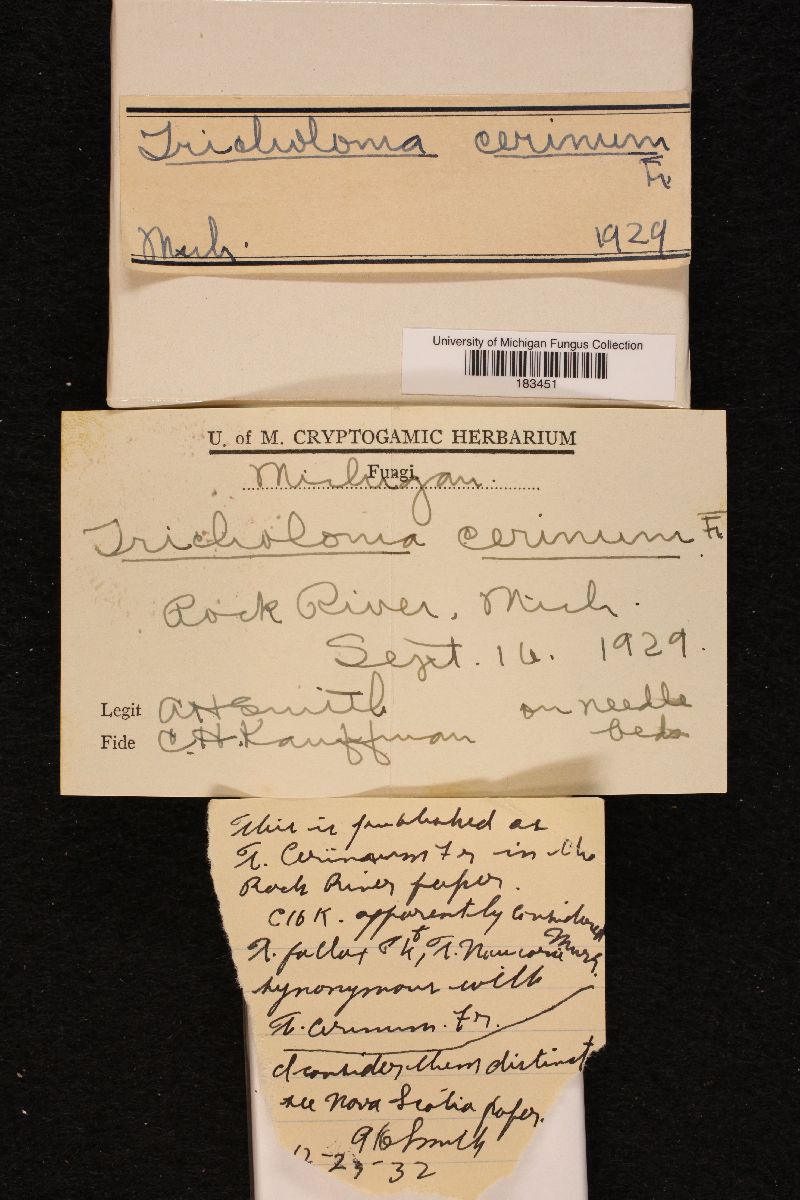 Tricholoma cerinum
Fr
Mich. 1929
University of Michigan Fungus Collection
183451
U. of M. CRYPTOGAMIC HERBARIUM
Fungi
Michigan.
Tricholoma cerinum Fr
Rock River, Mich.
Sept. 16. 1929.
Legit A H Smith on needle
Fide C.H. Kauffman beds
This is published as
T. Cerinum Fr in the
Rock River paper.
CHK. apparently considered
T. fallax Pk &, T. Naucoria Murr.
synonymous with
T. cerinum. Fr.
I consider them distinct
see Nova Scotia paper.
AHSmith
12-29-32